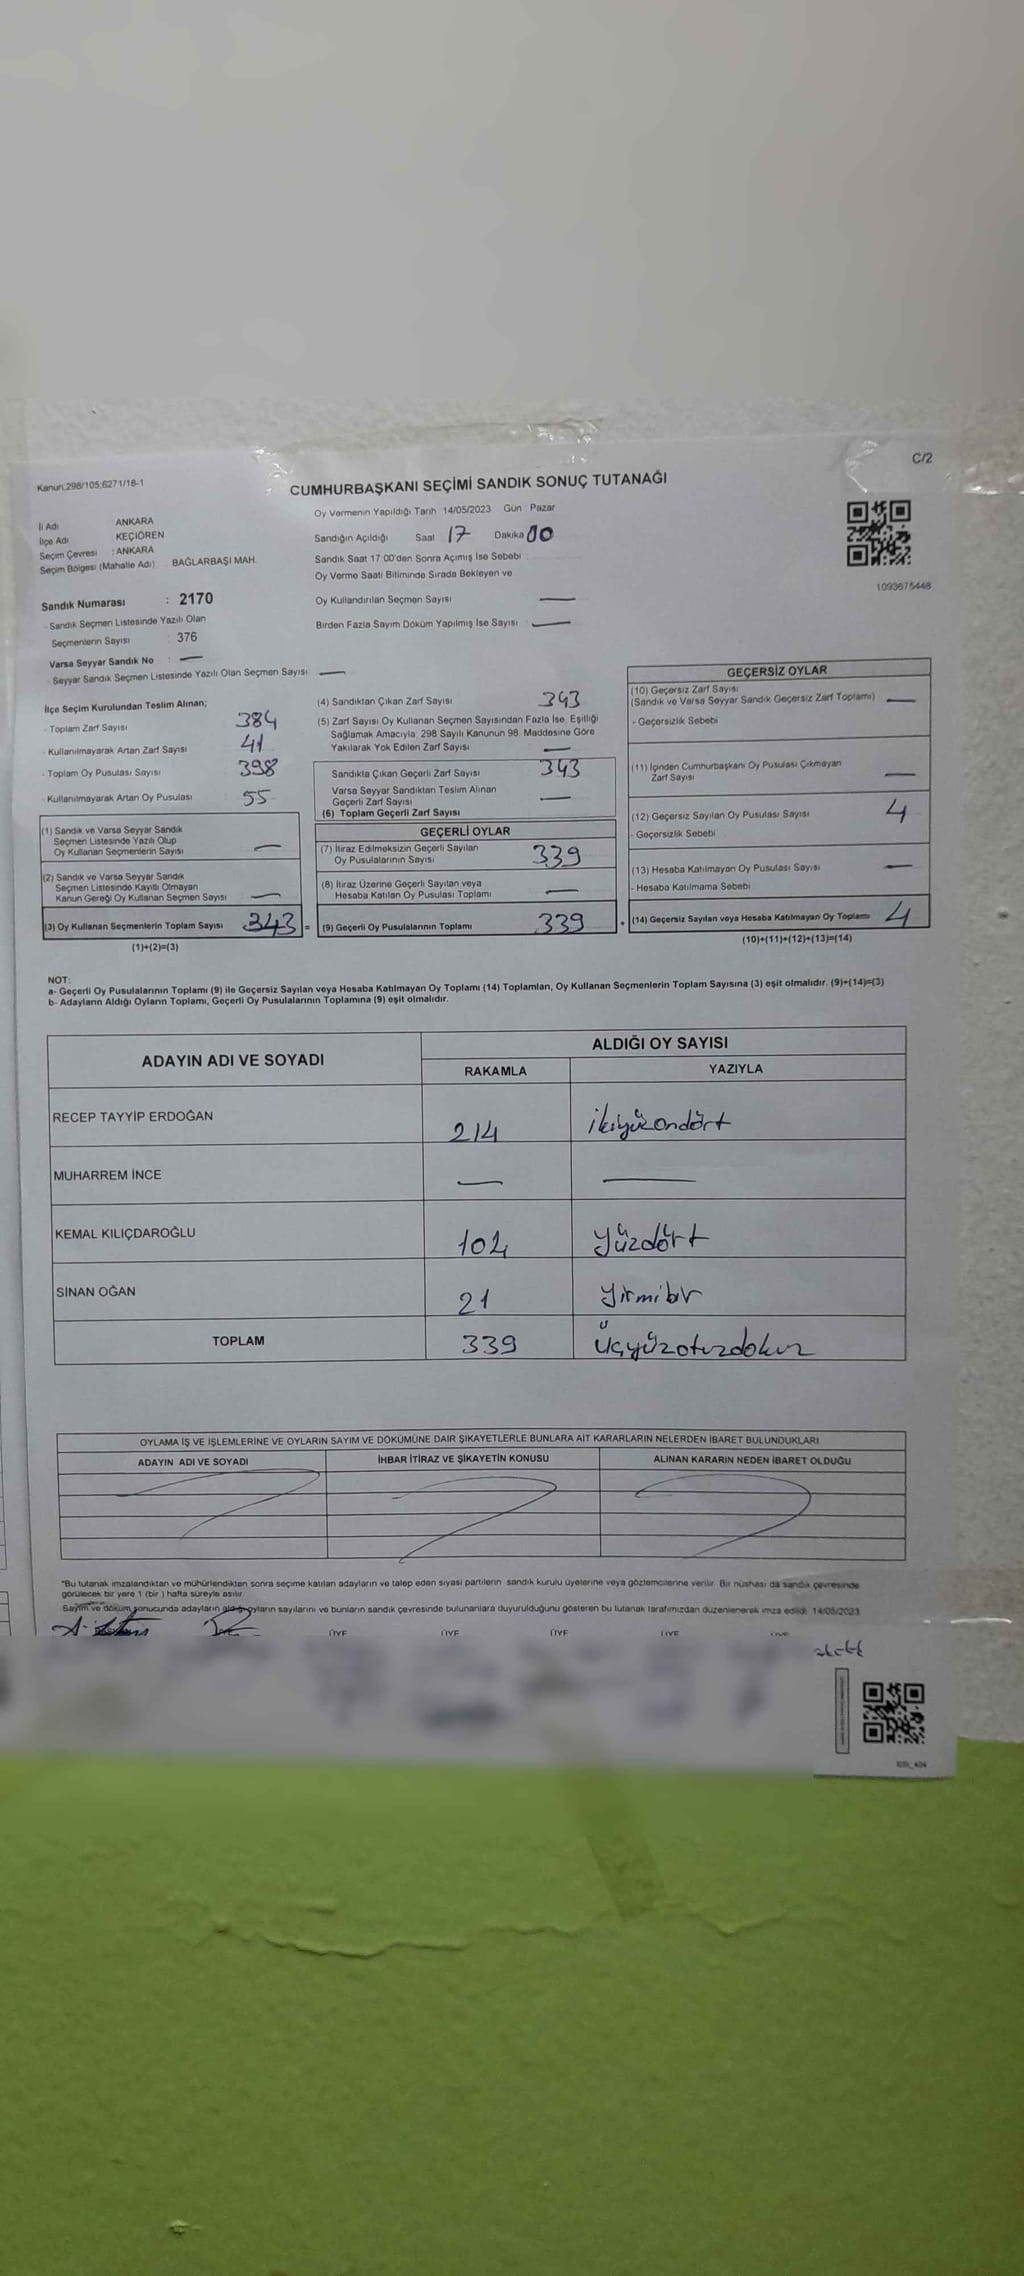 C/2
Kanun;298/105;6271/18-1
CUMHURBAŞKANI SEÇİMİ SANDIK SONUÇ TUTANAĞI
İl Adı ANKARA
İlçe Adı KEÇİÖREN
Seçim Çevresi : ANKARA
Seçim Bölgesi (Mahalle Adı) BAĞLARBAŞI MAH.
Oy Vermenin Yapıldığı Tarih 14/05/2023 Gün Pazar
Sandığın Açıldığı Saat 17 Dakika 00
Sandık Saat 17:00'den Sonra Açımış İse Sebebi
Oy Verme Saati Bitiminde Sırada Bekleyen ve
Oy Kullandırılan Seçmen Sayısı —
Birden Fazla Sayım Döküm Yapılmış İse Sayısı —
1093675448
Sandık Numarası : 2170
- Sandık Seçmen Listesinde Yazılı Olan
Seçmenlerin Sayısı : 376
Varsa Seyyar Sandık No : —
- Seyyar Sandık Seçmen Listesinde Yazılı Olan Seçmen Sayısı —
İlçe Seçim Kurulundan Teslim Alınan;
- Toplam Zarf Sayısı 384
- Kullanılmayarak Artan Zarf Sayısı 41
- Toplam Oy Pusulası Sayısı 398
- Kullanılmayarak Artan Oy Pusulası 55
(1) Sandık ve Varsa Seyyar Sandık
Seçmen Listesinde Yazılı Olup
Oy Kullanan Seçmenlerin Sayısı —
(2) Sandık ve Varsa Seyyar Sandık
Seçmen Listesinde Kayıtlı Olmayan
Kanun Gereği Oy Kullanan Seçmen Sayısı —
(3) Oy Kullanan Seçmenlerin Toplam Sayısı 343
(1)+(2)=(3)
(4) Sandıktan Çıkan Zarf Sayısı 343
(5) Zarf Sayısı Oy Kullanan Seçmen Sayısından Fazla İse, Eşitliği
Sağlamak Amacıyla, 298 Sayılı Kanunun 98. Maddesine Göre
Yakılarak Yok Edilen Zarf Sayısı —
Sandıkta Çıkan Geçerli Zarf Sayısı 343
Varsa Seyyar Sandıktan Teslim Alınan
Geçerli Zarf Sayısı —
(6) Toplam Geçerli Zarf Sayısı
GEÇERLİ OYLAR
(7) İtiraz Edilmeksizin Geçerli Sayılan
Oy Pusulalarının Sayısı 339
(8) İtiraz Üzerine Geçerli Sayılan veya
Hesaba Katılan Oy Pusulası Toplamı —
= (9) Geçerli Oy Pusulalarının Toplamı 339
GEÇERSİZ OYLAR
(10) Geçersiz Zarf Sayısı
(Sandık ve Varsa Seyyar Sandık Geçersiz Zarf Toplamı) —
- Geçersizlik Sebebi
(11) İçinden Cumhurbaşkanı Oy Pusulası Çıkmayan
Zarf Sayısı —
(12) Geçersiz Sayılan Oy Pusulası Sayısı 4
- Geçersizlik Sebebi
(13) Hesaba Katılmayan Oy Pusulası Sayısı —
- Hesaba Katılmama Sebebi
+ (14) Geçersiz Sayılan veya Hesaba Katılmayan Oy Toplamı 4
(10)+(11)+(12)+(13)=(14)
NOT:
a- Geçerli Oy Pusulalarının Toplamı (9) ile Geçersiz Sayılan veya Hesaba Katılmayan Oy Toplamı (14) Toplamları, Oy Kullanan Seçmenlerin Toplam Sayısına (3) eşit olmalıdır. (9)+(14)=(3)
b- Adayların Aldığı Oyların Toplamı, Geçerli Oy Pusulalarının Toplamına (9) eşit olmalıdır.
ADAYIN ADI VE SOYADI
ALDIĞI OY SAYISI
RAKAMLA YAZIYLA
RECEP TAYYİP ERDOĞAN 214 ikiyüzondört
MUHARREM İNCE — —
KEMAL KILIÇDAROĞLU 104 yüzdört
SİNAN OĞAN 21 yirmibir
TOPLAM 339 üçyüzotuzdokuz
OYLAMA İŞ VE İŞLEMLERİNE VE OYLARIN SAYIM VE DÖKÜMÜNE DAİR ŞİKAYETLERLE BUNLARA AİT KARARLARIN NELERDEN İBARET BULUNDUKLARI
ADAYIN ADI VE SOYADI İHBAR İTİRAZ VE ŞİKAYETİN KONUSU ALINAN KARARIN NEDEN İBARET OLDUĞU
*Bu tutanak imzalandıktan ve mühürlendikten sonra seçime katılan adayların ve talep eden siyasi partilerin sandık kurulu üyelerine veya gözlemcilerine verilir. Bir nüshası da sandık çevresinde
görülecek bir yere 1 (bir ) hafta süreyle asılır.
Sayım ve döküm sonucunda adayların aldığı oyların sayılarını ve bunların sandık çevresinde bulunanlara duyurulduğunu gösteren bu tutanak tarafımızdan düzenlenerek imza edildi. 14/05/2023
ÜYE ÜYE ÜYE ÜYE ÜYE